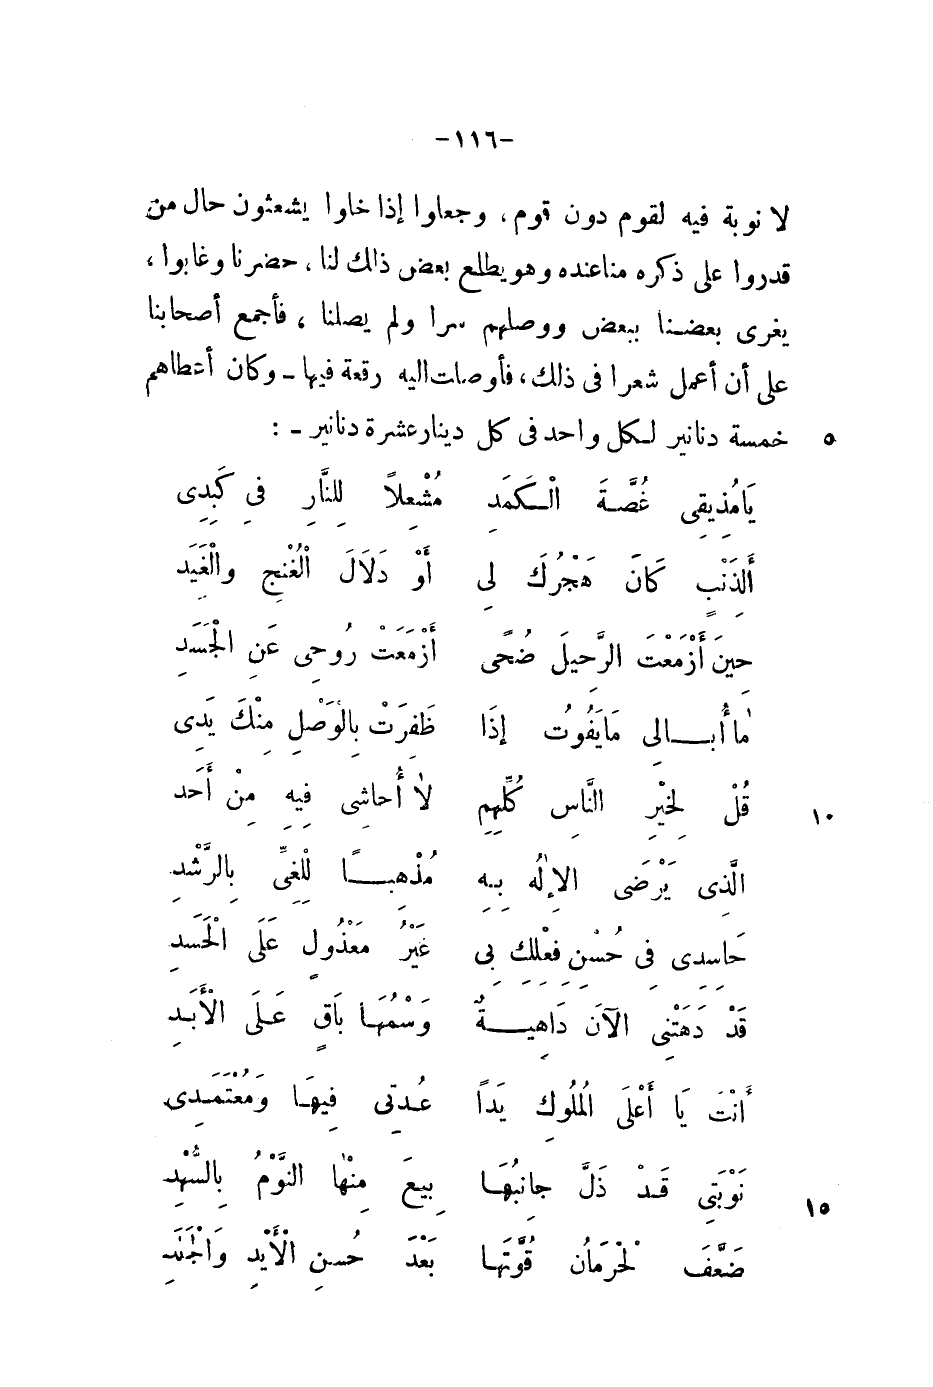 -١١٦-
لا نوبة فيه لقوم دون قوم، وجعلوا إذا خلوا يشعثون حال من
قدروا على ذكره منا عنده وهو يطلع بعض ذلك لنا، حضرنا وغابوا،
يغرى بعضنا ببعض ووصلهم سرا ولم يصلنا، فأجمع أصحابنا
على أن أعمل شعرا فى ذلك، فأوصلت اليه رقعة فيها ـ وكان أعطاهم
٥ خمسة دنانير لكل واحد فى كل دينار عشرة دنانير ـ :
يَامُذِيقِى غُصَّةَ الْكَمَدِ مُشْعِلاً لِلنَّارِ فِى كَبِدِى
أَلِذَنْبٍ كَانَ هَجْرُكَ لِى أَوْ دَلَالَ الْغُنْجِ والْغَيَدِ
حِينَ أَزْمَعْتَ الرَّحِيلَ ضُحًى أَزْمَعَتْ رُوحِى عَنِ الْجَسَدِ
مَا أُبَالِى مَايَفُوتُ إِذَا ظَفِرَتْ بِالْوَصْلِ مِنْكَ يَدِى
١٠ قُلْ لِخَيْرِ النَّاسِ كُلِّهِمِ لاَ أُحاشِى فِيهِ مِنْ أَحَدِ
الَّذِى يَرْضَى الإِلٰهُ بِهِ مُذْهِبًا لِلْغَىِّ بِالرَّشَدِ
حَاسِدِى فِى حُسْنِ فِعْلِكَ بِى غَيْرُ مَعْذُولٍ عَلَى الْحَسَدِ
قَدْ دَهَتْنِى الآنَ دَاهِيَةٌ وَسْمُهَا بَاقٍ عَلَى الْأَبَدِ
أَنْتَ يَا أَعْلَى الْمُلُوكِ يَداً عُدَّتِى فِيهَا وَمُعْتَمَدِى
نَوْبَتِى قَدْ ذَلَّ جانِبُهَا بِيعَ مِنْها النَّوْمُ بِالسُّهْدِ ١٥
ضَعَّفَ الْحِرْمَانُ قُوَّتَهَا بَعْدَ حُسنِ الْأَيْدِ وَالْجَلَدِ